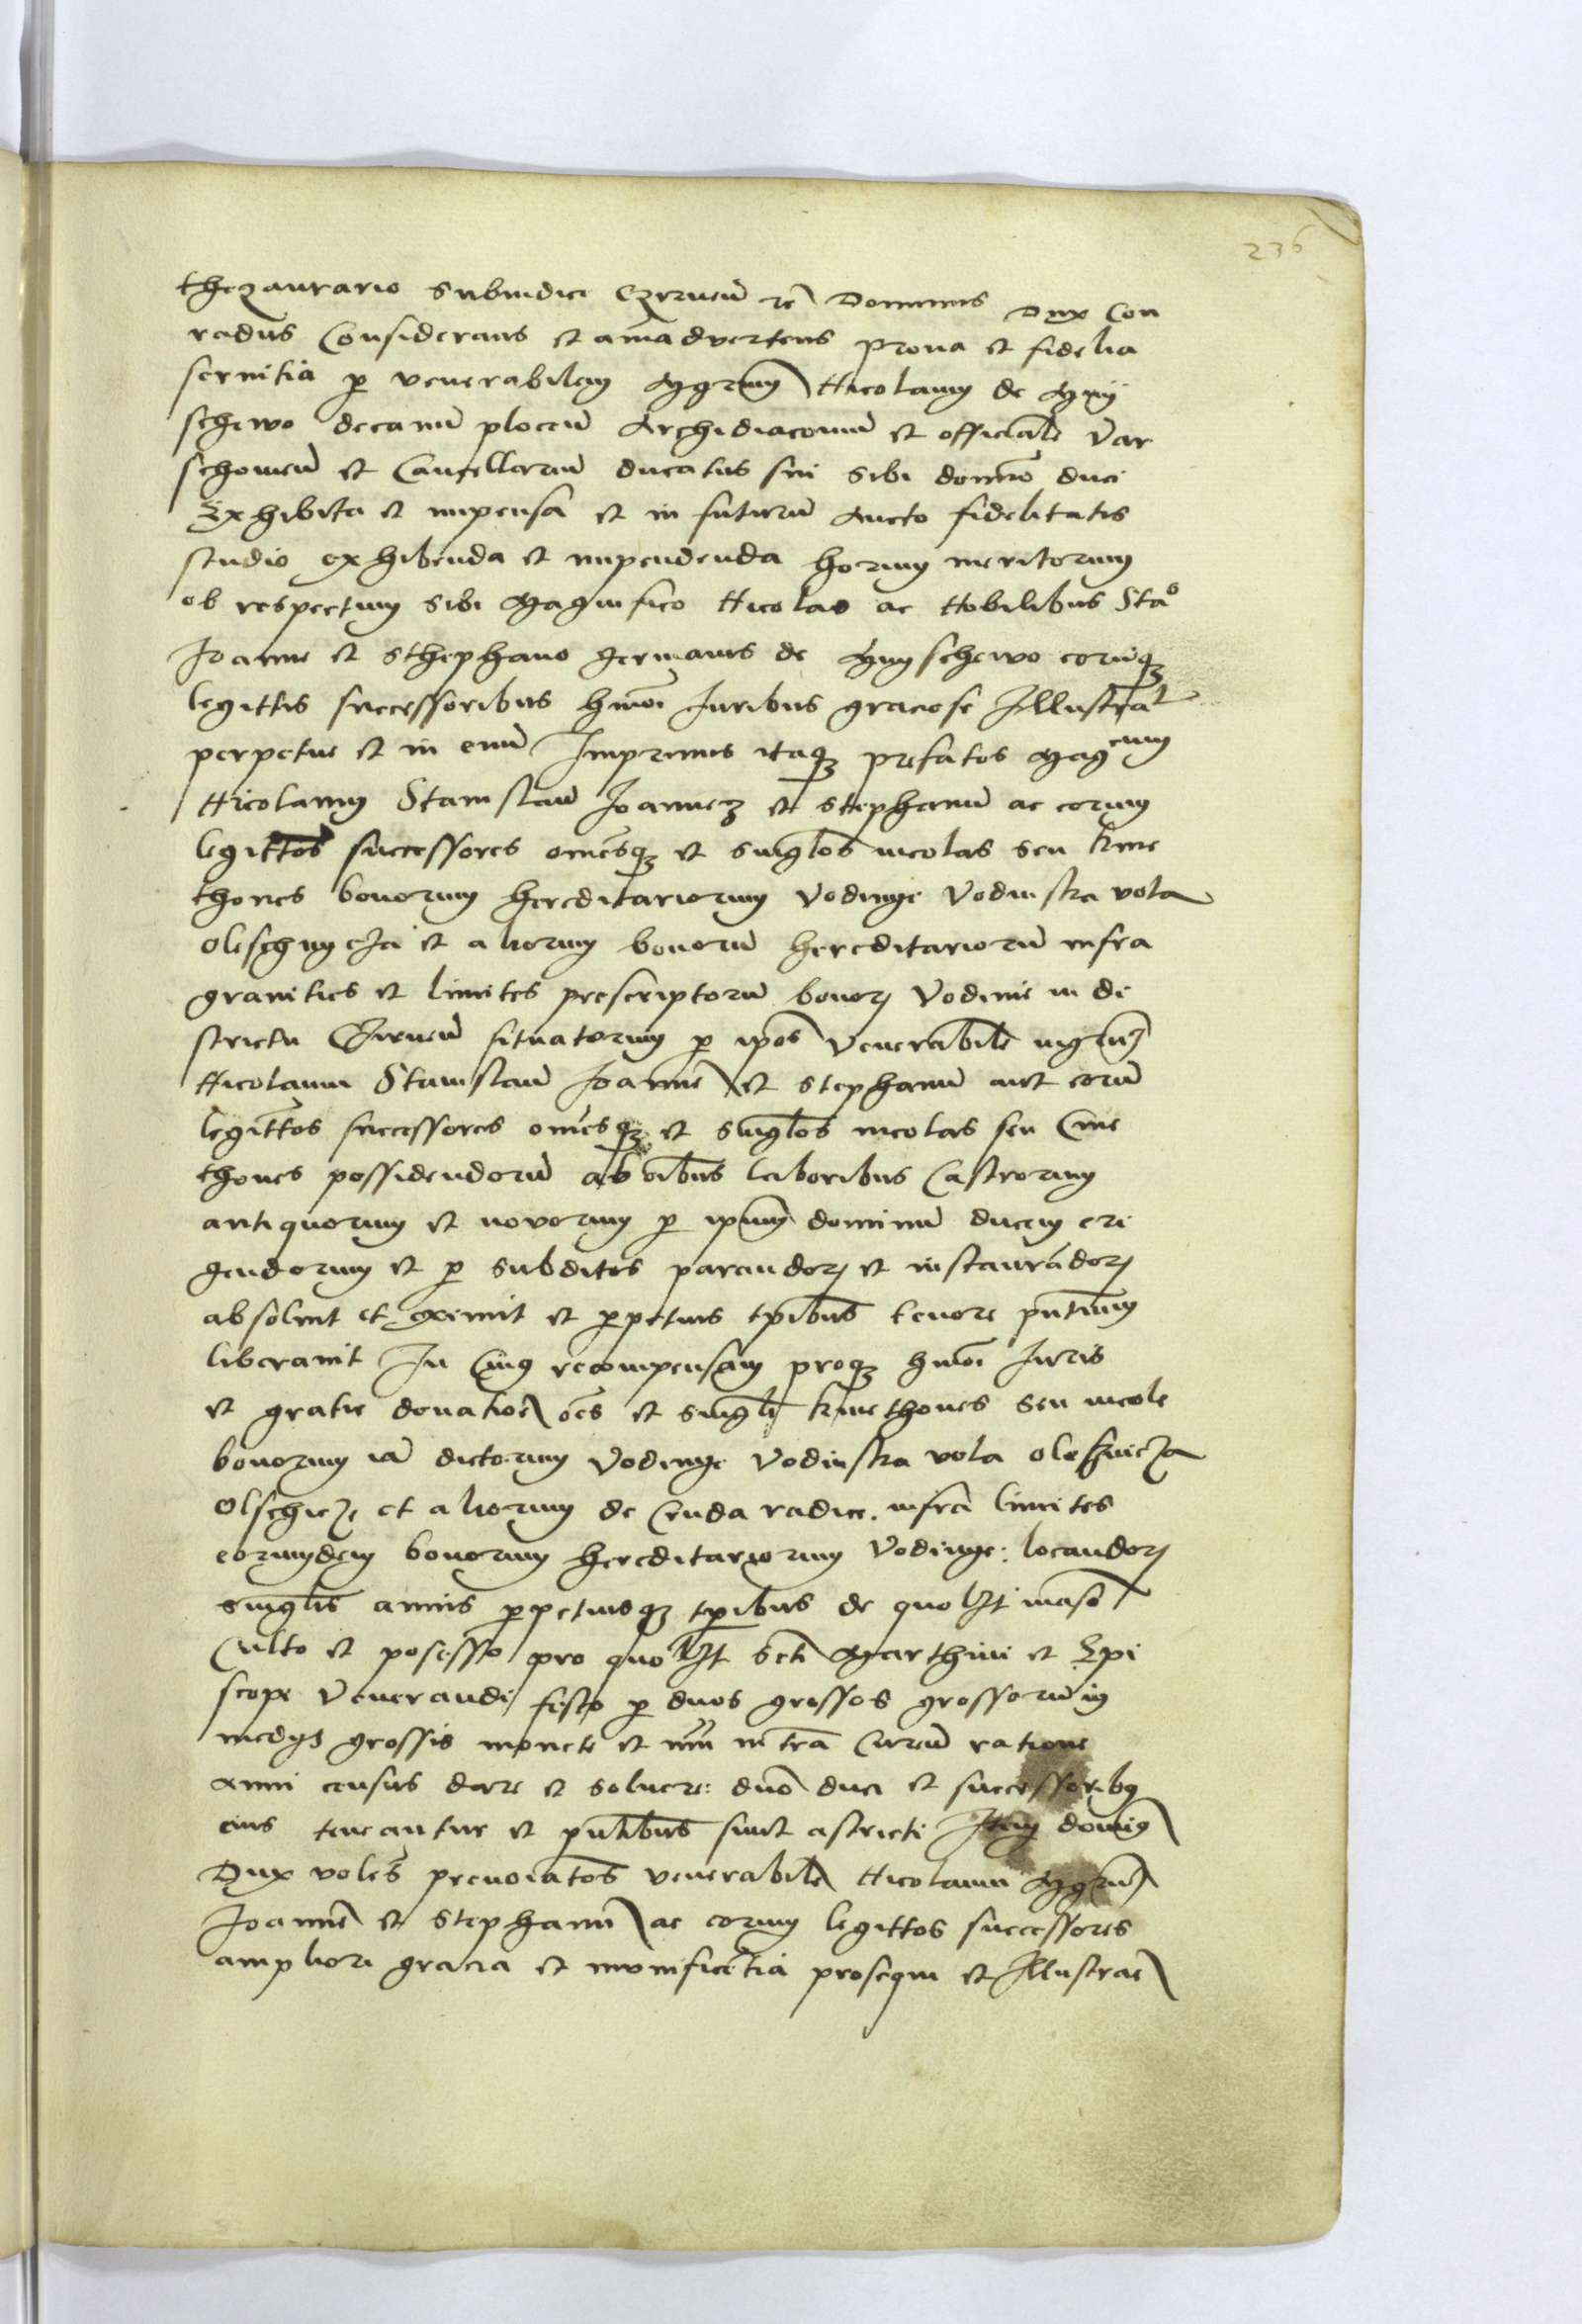 236
thezaurario Subiudice Czrneñ rc̃ Dominus Dux Con
radus Considerans et aĩadvertens prona et fidelia
servitia p venerabilem Mgrm̃ Nicolaum de Mny
schewo decanũ plocẽn Archidiaconum et officialẽ Var
schovieñ et Cancellariũ ducatus sui sibi domĩo duci
Exhibita et impensa et in futurũ aucto fidelitatis
studio exhibenda et impendenda horum meritorum
ob respectum sibi Magnifico Nicolao ac Nobilibus Staº
Joanne et Sthephano germanis de Mnyschewo eorũq3
legittis successoribus hmõi Juribus graciose Illustrat
perpetue et in evũ Imprimis itaq3 prefatos Magcum
Nicolaum Stanislaũ Joannez et Stephanũ ac eorum
legittos successores omẽsq3 et singłos incolas seu kme
thones bonorum hereditariorum Vodinye Vodinska vola
et aliorum bonorũ hereditariorũ infra
granities et limites prescriptorũ bonorz Vodinie in di
strictu situatorum p ip̃os Venerabilẽ mgrũ
Nicolaum Stanislaũ Joannẽ et Stephanũ aut eorũ
legittos successores om̃esq3 et singłos incolas seu Cme
thones possidendorũ ab oĩbus laboribus Castrorum
antiquorum et novorum p ip̃um dominũ ducem eri
gendorum et p subditos parandorz et instaurãdorz
absolvit et eximit et ppetuis tp̃ibus tenore pñtium
liberavit In Cuiq recompensam proq3 hmõi Juris
et gratie donatioẽ ões et singłi kmethones seu incole
bonorum iã dictorum Vodinye Vodinska vola
et aliorum de Cruda radice infra limites
eorumdem bonorum hereditariorum Vodinye: locandorz
singłis annis ppetuisq3 tp̃ibus de quolłt manso
Culto et posesso pro quolłt Scti Marthini et Epi
scopi Venerandi festo p duos grossos grossorũ in
medys grossis monete et nũi in terã Czrneñ ratione
anni census dare et solvere: dño duci et successoribq
eius teneantur et pñtibus sint astricti Item dominq
Dux volẽs prenoĩatos venerabilẽ Nicolaum Mgrũ
Joannẽ et Stephanũ ac eorum legittos successores
ampliori gracia et munificẽtia prosequi et Illustrar̃